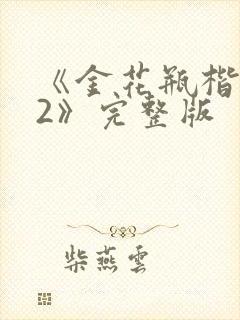 《金花瓶楷
2》完整版
柴燕雲